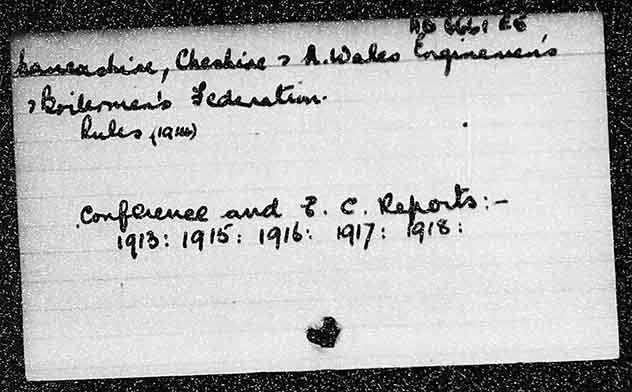 HD 6661 E6
Lancashire, Cheshire & N. Wales Enginemen's
& Boilermen's Federation.
Rules (1914)
Conference and E. C. Reports:-
1913: 1915: 1916: 1917: 1918: